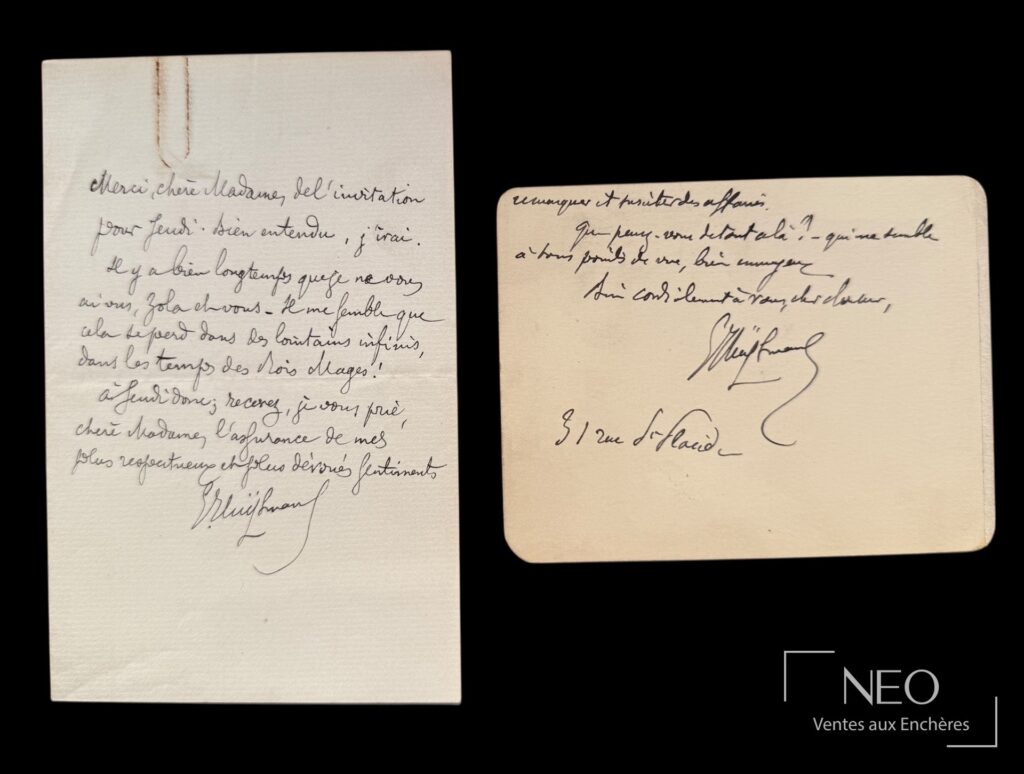 Merci, chère Madame, de l'invitation
pour Jeudi. Bien entendu, j'irai.
Il y a bien longtemps que je ne vous
ai vus, Zola et vous – Il me semble que
cela se perd dans des lointains infinis,
dans les temps des Rois Mages!
à Jeudi donc; recevez, je vous prie,
chère Madame, l'assurance de mes
plus respectueux et plus dévoués sentiments
Huÿsmans
remarquer et susciter des affaires.
Que pensez-vous de tout cela? – qui me semble
à tous points de vue, bien ennuyeux
bien cordialement à vous, cher
Huÿsmans
31 rue St Placide
NEO
Ventes aux Enchères